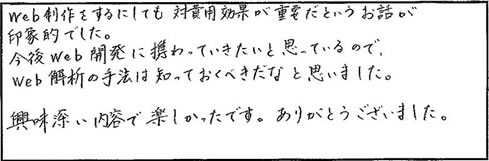 Web制作をするにしても対費用効果が重要だというお話が
印象的でした。
今後Web開発に携わっていきたいと思っているので、
Web解析の手法は知っておくべきだなと思いました。
興味深い内容で楽しかったです。ありがとうございました。